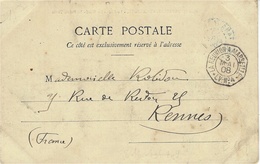 CARTE POSTALE
Ce côté est exclusivement réservé à l'adresse
Mademoiselle Robidou
25 Rue de Redon 25
Rennes
(France)
3
MAI
08